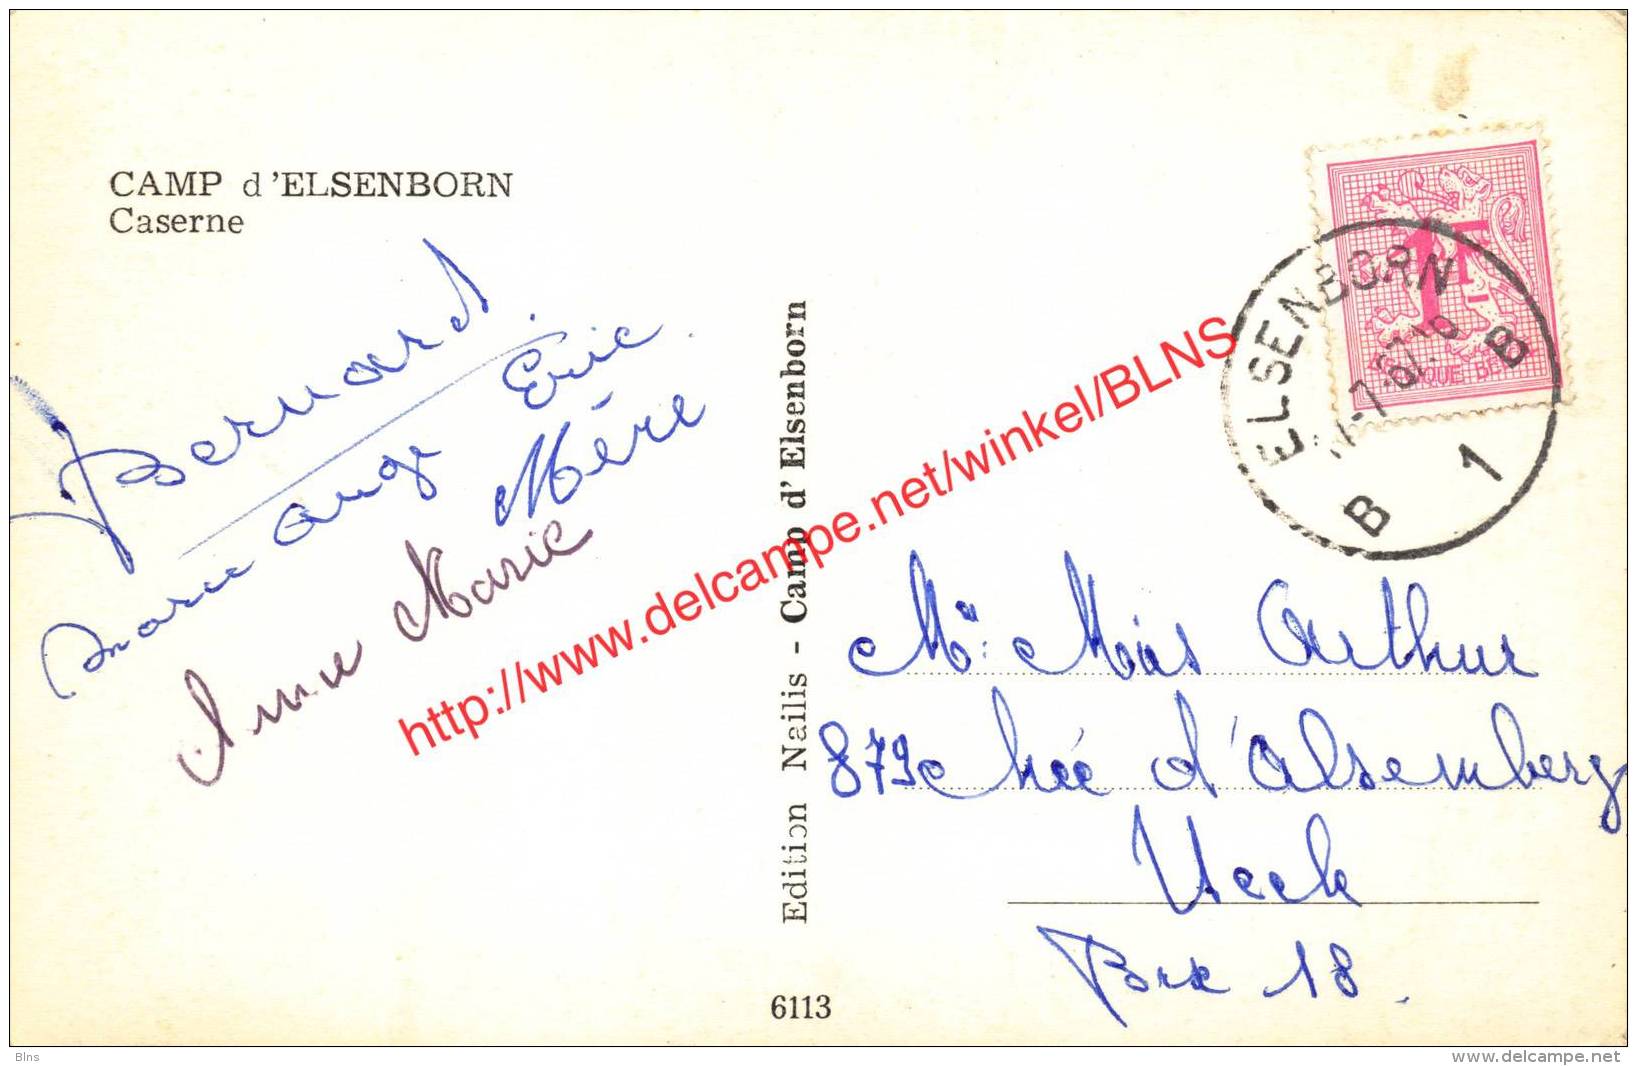 CAMP d'ELSENBORN
Caserne
Bernard
Eric
Marie Ange
Mère
Anne Marie
Edition Nailis - Camp d'Elsenborn
6113
1F
BELGIQUE BELGIE
ELSENBORN
B
B 1
Mr: Arthur
879 chée d'Alsemberg
Uccle
Brx 18.
http://www.delcampe.net/winkel/BLNS
Blns
www.delcampe.net